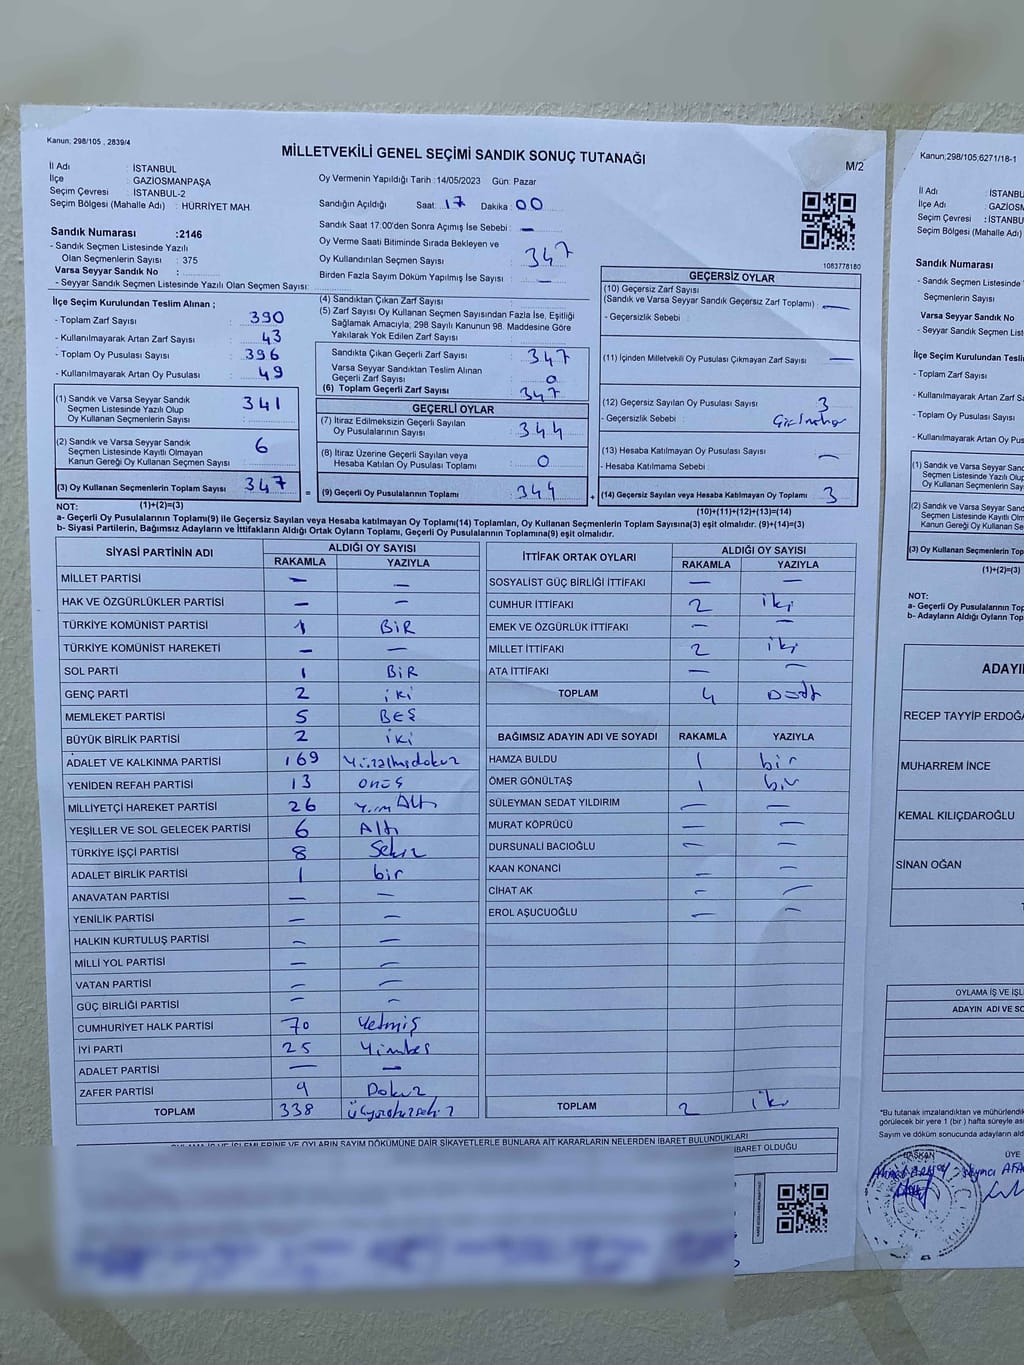 Kanun; 298/105 , 2839/4
MİLLETVEKİLİ GENEL SEÇİMİ SANDIK SONUÇ TUTANAĞI
M/2
İl Adı : İSTANBUL
İlçe : GAZİOSMANPAŞA
Seçim Çevresi : İSTANBUL-2
Seçim Bölgesi (Mahalle Adı) : HÜRRİYET MAH.
Sandık Numarası :2146
- Sandık Seçmen Listesinde Yazılı
Olan Seçmenlerin Sayısı : 375
Varsa Seyyar Sandık No :
- Seyyar Sandık Seçmen Listesinde Yazılı Olan Seçmen Sayısı:
Oy Vermenin Yapıldığı Tarih :14/05/2023 Gün: Pazar
Sandığın Açıldığı Saat: 17 Dakika : 00
Sandık Saat 17:00'den Sonra Açımış İse Sebebi : -
Oy Verme Saati Bitiminde Sırada Bekleyen ve
Oy Kullandırılan Seçmen Sayısı : 347
Birden Fazla Sayım Döküm Yapılmış İse Sayısı : -
1083778180
İlçe Seçim Kurulundan Teslim Alınan ;
- Toplam Zarf Sayısı : 390
- Kullanılmayarak Artan Zarf Sayısı : 43
- Toplam Oy Pusulası Sayısı : 396
- Kullanılmayarak Artan Oy Pusulası : 49
(1) Sandık ve Varsa Seyyar Sandık
Seçmen Listesinde Yazılı Olup
Oy Kullanan Seçmenlerin Sayısı : 341
(2) Sandık ve Varsa Seyyar Sandık
Seçmen Listesinde Kayıtlı Olmayan
Kanun Gereği Oy Kullanan Seçmen Sayısı : 6
(3) Oy Kullanan Seçmenlerin Toplam Sayısı : 347
(1)+(2)=(3)
(4) Sandıktan Çıkan Zarf Sayısı :
(5) Zarf Sayısı Oy Kullanan Seçmen Sayısından Fazla İse, Eşitliği
Sağlamak Amacıyla, 298 Sayılı Kanunun 98. Maddesine Göre
Yakılarak Yok Edilen Zarf Sayısı :
Sandıkta Çıkan Geçerli Zarf Sayısı : 347
Varsa Seyyar Sandıktan Teslim Alınan
Geçerli Zarf Sayısı : 0
(6) Toplam Geçerli Zarf Sayısı : 347
GEÇERLİ OYLAR
(7) İtiraz Edilmeksizin Geçerli Sayılan
Oy Pusulalarının Sayısı : 344
(8) İtiraz Üzerine Geçerli Sayılan veya
Hesaba Katılan Oy Pusulası Toplamı : 0
= (9) Geçerli Oy Pusulalarının Toplamı : 344
GEÇERSİZ OYLAR
(10) Geçersiz Zarf Sayısı
(Sandık ve Varsa Seyyar Sandık Geçersiz Zarf Toplamı) : -
- Geçersizlik Sebebi :
(11) İçinden Milletvekili Oy Pusulası Çıkmayan Zarf Sayısı : -
(12) Geçersiz Sayılan Oy Pusulası Sayısı : 3
- Geçersizlik Sebebi :
(13) Hesaba Katılmayan Oy Pusulası Sayısı : -
- Hesaba Katılmama Sebebi :
+ (14) Geçersiz Sayılan veya Hesaba Katılmayan Oy Toplamı : 3
(10)+(11)+(12)+(13)=(14)
NOT:
a- Geçerli Oy Pusulalarının Toplamı(9) ile Geçersiz Sayılan veya Hesaba katılmayan Oy Toplamı(14) Toplamları, Oy Kullanan Seçmenlerin Toplam Sayısına(3) eşit olmalıdır. (9)+(14)=(3)
b- Siyasi Partilerin, Bağımsız Adayların ve İttifakların Aldığı Ortak Oyların Toplamı, Geçerli Oy Pusulalarının Toplamına(9) eşit olmalıdır.
SİYASİ PARTİNİN ADI ALDIĞI OY SAYISI
RAKAMLA YAZIYLA
MİLLET PARTİSİ - -
HAK VE ÖZGÜRLÜKLER PARTİSİ - -
TÜRKİYE KOMÜNİST PARTİSİ 1 BİR
TÜRKİYE KOMÜNİST HAREKETİ - -
SOL PARTİ 1 BİR
GENÇ PARTİ 2 iKi
MEMLEKET PARTİSİ 5 BEŞ
BÜYÜK BİRLİK PARTİSİ 2 iKi
ADALET VE KALKINMA PARTİSİ 169
YENİDEN REFAH PARTİSİ 13 onüç
MİLLİYETÇİ HAREKET PARTİSİ 26
YEŞİLLER VE SOL GELECEK PARTİSİ 6 Altı
TÜRKİYE İŞÇİ PARTİSİ 8 Sekiz
ADALET BİRLİK PARTİSİ 1 bir
ANAVATAN PARTİSİ - -
YENİLİK PARTİSİ - -
HALKIN KURTULUŞ PARTİSİ - -
MİLLİ YOL PARTİSİ - -
VATAN PARTİSİ - -
GÜÇ BİRLİĞİ PARTİSİ - -
CUMHURİYET HALK PARTİSİ 70 Yetmiş
İYİ PARTİ 25
ADALET PARTİSİ - -
ZAFER PARTİSİ 9 Dokuz
TOPLAM 338
İTTİFAK ORTAK OYLARI ALDIĞI OY SAYISI
RAKAMLA YAZIYLA
SOSYALİST GÜÇ BİRLİĞİ İTTİFAKI - -
CUMHUR İTTİFAKI 2 iki
EMEK VE ÖZGÜRLÜK İTTİFAKI - -
MİLLET İTTİFAKI 2 iki
ATA İTTİFAKI - -
TOPLAM 4 Dört
BAĞIMSIZ ADAYIN ADI VE SOYADI RAKAMLA YAZIYLA
HAMZA BULDU 1 bir
ÖMER GÖNÜLTAŞ 1 bir
SÜLEYMAN SEDAT YILDIRIM - -
MURAT KÖPRÜCÜ - -
DURSUNALİ BACIOĞLU - -
KAAN KONANCİ - -
CİHAT AK - -
EROL AŞUCUOĞLU - -
TOPLAM 2 iki
OYLAMA İŞ VE İŞLEMLERİNE VE OYLARIN SAYIM DÖKÜMÜNE DAİR ŞİKAYETLERLE BUNLARA AİT KARARLARIN NELERDEN İBARET BULUNDUKLARI
İBARET OLDUĞU
Kanun;298/105,6271/18-1
İl Adı : İSTANBU
İlçe : GAZİOSM
Seçim Çevresi : İSTANBU
Seçim Bölgesi (Mahalle Adı)
Sandık Numarası
- Sandık Seçmen Listesinde
Seçmenlerin Sayısı
Varsa Seyyar Sandık No
- Seyyar Sandık Seçmen List
İlçe Seçim Kurulundan Tesli
- Toplam Zarf Sayısı
- Kullanılmayarak Artan Zarf
- Toplam Oy Pusulası Sayısı
- Kullanılmayarak Artan Oy Pus
(1) Sandık ve Varsa Seyyar
Seçmen Listesinde Yazılı
Oy Kullanan Seçmenlerin Say
(2) Sandık ve Varsa Seyyar S
Seçmen Listesinde Kayıtlı Olm
Kanun Gereği Oy Kullanan Se
(3) Oy Kullanan Seçmenlerin Top
(1)+(2)=(3)
NOT:
a- Geçerli Oy Pusulalarının Top
b- Adayların Aldığı Oyların Top
ADAYIN
RECEP TAYYİP ERDOĞA
MUHARREM İNCE
KEMAL KILIÇDAROĞLU
SİNAN OĞAN
OYLAMA İŞ VE İŞLE
ADAYIN ADI VE SO
*Bu tutanak imzalandıktan ve mühürlendik
görülecek bir yere 1 (bir ) hafta süreyle ası
Sayım ve döküm sonucunda adayların aldı
BAŞKAN ÜYE